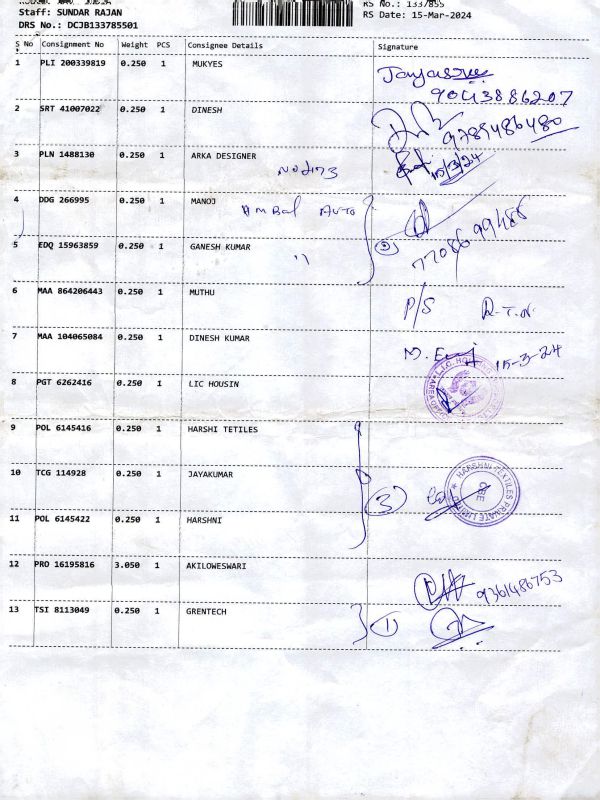 Staff: SUNDAR RAJAN
DRS No.: DCJB133785501
RS No.: 1337855
RS Date: 15-Mar-2024
S No Consignment No Weight PCS Consignee Details Signature
1 PLI 200339819 0.250 1 MUKYES
9043886207
2 SRT 41007022 0.250 1 DINESH
9789486480
3 PLN 1488130 0.250 1 ARKA DESIGNER
15/3/24
4 DDG 266995 0.250 1 MANOJ
Ambal Auto
5 EDQ 15963859 0.250 1 GANESH KUMAR
" 2
6 MAA 864206443 0.250 1 MUTHU P/S R.T.N.
7 MAA 104065084 0.250 1 DINESH KUMAR
15-3-24
8 PGT 6262416 0.250 1 LIC HOUSIN
9 POL 6145416 0.250 1 HARSHI TETILES
10 TCG 114928 0.250 1 JAYAKUMAR
3
HARSHNI TEXTILES PRIVATE LIMITED
CBE
11 POL 6145422 0.250 1 HARSHNI
12 PRO 16195816 3.050 1 AKILOWESWARI
9361486753
13 TSI 8113049 0.250 1 GRENTECH 1